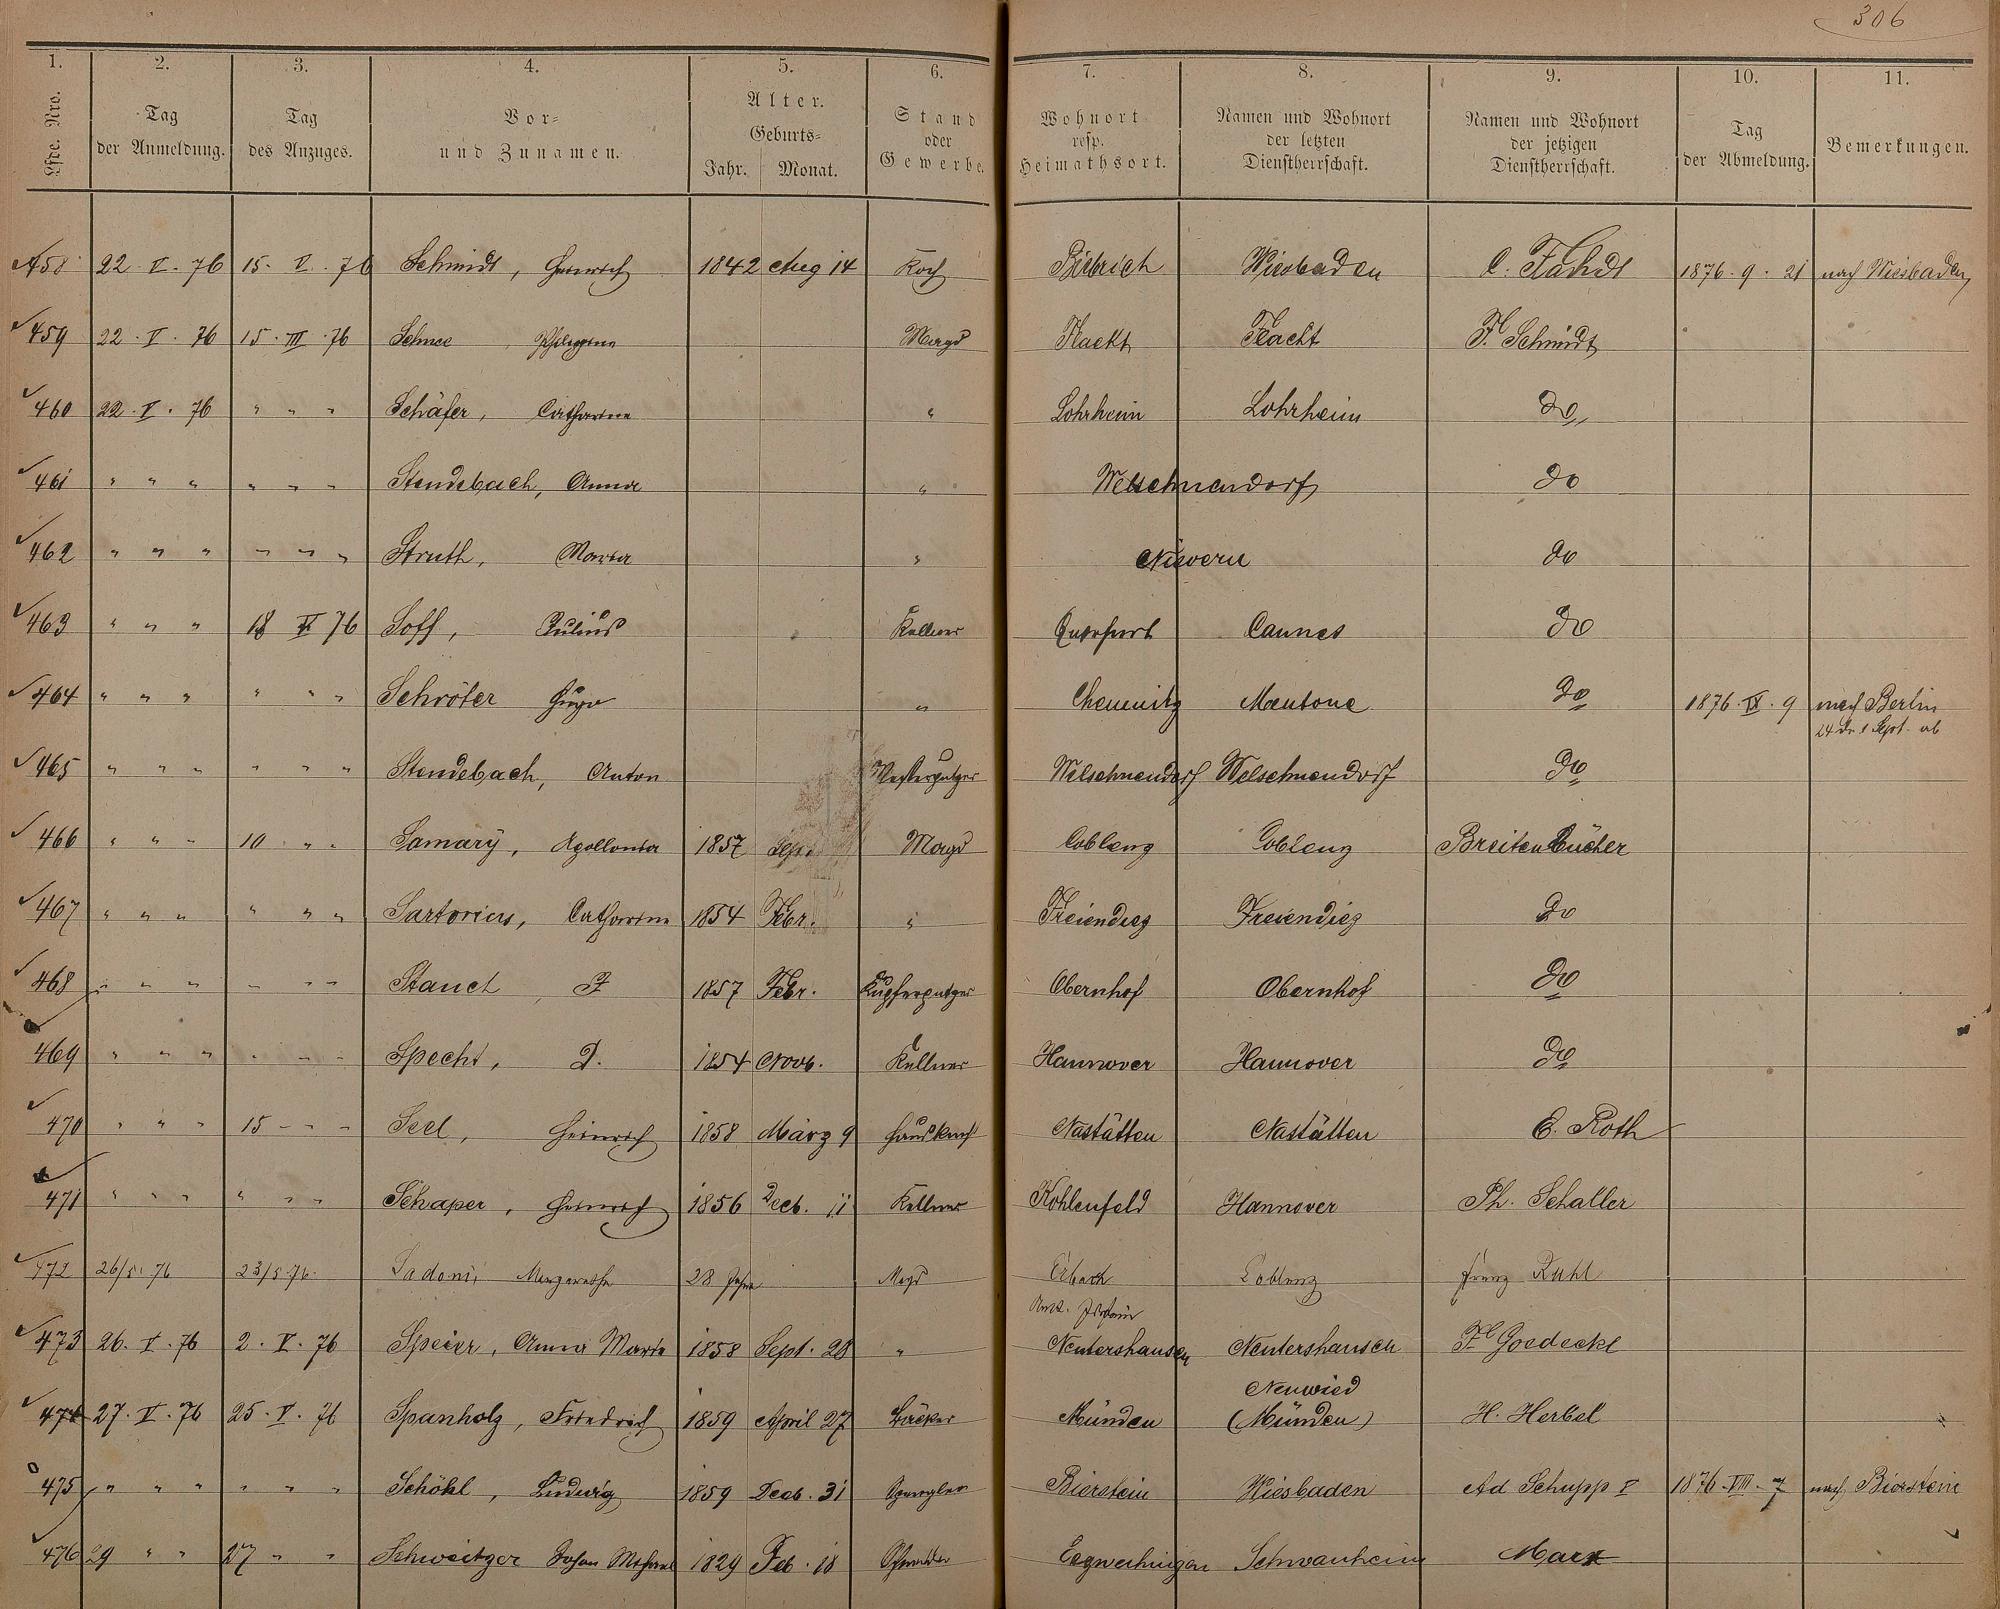 306
1. 2. 3. 4. 5. 6. 7. 8. 9. 10. 11.
Lfde. Nro. Tag der Anmeldung. Tag des Anzuges. Vor- und Zunamen. Alter. Geburts- Jahr. Monat. Stand oder Gewerbe. Wohnort resp. Heimathsort. Namen und Wohnort der letzten Dienstherrschaft. Namen und Wohnort der jetzigen Dienstherrschaft. Tag der Abmeldung. Bemerkungen.
458 22. V. 76 15. V. 76 Schmidt, Heinrich 1842 Aug 14 Koch Biebrich Wiesbaden C. 1876. 9. 21 nach Wiesbaden
459 22. V. 76 15. III. 76 Schnee Philippine Magd Flacht Flacht F. Schmidt
460 22. V. 76 " " " Schäfer, Catharine " Lohrheim Lohrheim do
461 " " " " " " Stendebach, Anna " Welschneudorf do
462 " " " " " " Struth, Maria " Nievern do
463 " " " 18 76 Soff, Julius Kellner Querfurt Cannes do
464 " " " " " " Schröter Hugo " Chemnitz Mentone do 1876. IX. 9 nach Berlin
Sept. ab
465 " " " " " " Stendebach, Anton Welschneudorf Welschneudorf do
466 " " " 10 " " Samary, Apollonia 1857 Sept. Magd Coblenz Coblenz Breitenbücher
467 " " " " " " Sartorius, Catharine 1854 Febr. " Freiendiez Freiendiez do
468 " " " " " " F 1857 Febr. Kupferputzer Obernhof Obernhof do
469 " " " " " " Specht, D. 1854 Novb. Kellner Hannover Hannover do
470 " " " 15 " " Seel, Heinrich 1858 März 9 Nastätten Nastätten E. Roth
471 " " " " " " Schaper, Heinrich 1856 Decb. 11 Kellner Kohlenfeld Hannover Ph. Schaller
472 26/5. 76 23/5. 76. Sadoni, Margarethe 28 Jahre Magd Erbach Coblenz Franz Ruhl
Amt.
473 26. V. 76 2. V. 76 Speier, Anna Maria 1858 Sept. 28 " Nentershausen Nentershausen Goedecke
Neuwied
474 27. V. 76 25. V. 76 Spanholz, Friedrich 1859 April 27 Bäcker Münden (Münden) H. Herbel
475 " " " " " " Schöhl, Ludwig 1859 Decb. 31 Spengler Bierstein Wiesbaden Ad Schupp 1876. VIII. 7 nach Bierstein
476 29 " " 27 " " Schweitzer Johan Michael 1829 Feb. 18 Schwanheim Marx